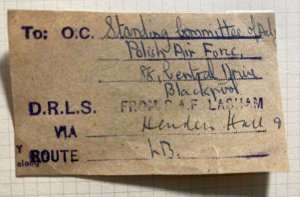 To: O.C. Standing Committee of
Polish Air Force,
88, Central Drive
Blackpool
D.R.L.S. FROM R.A.F. LASHAM
VIA Hendon Hall 9
Y
along
ROUTE LB.